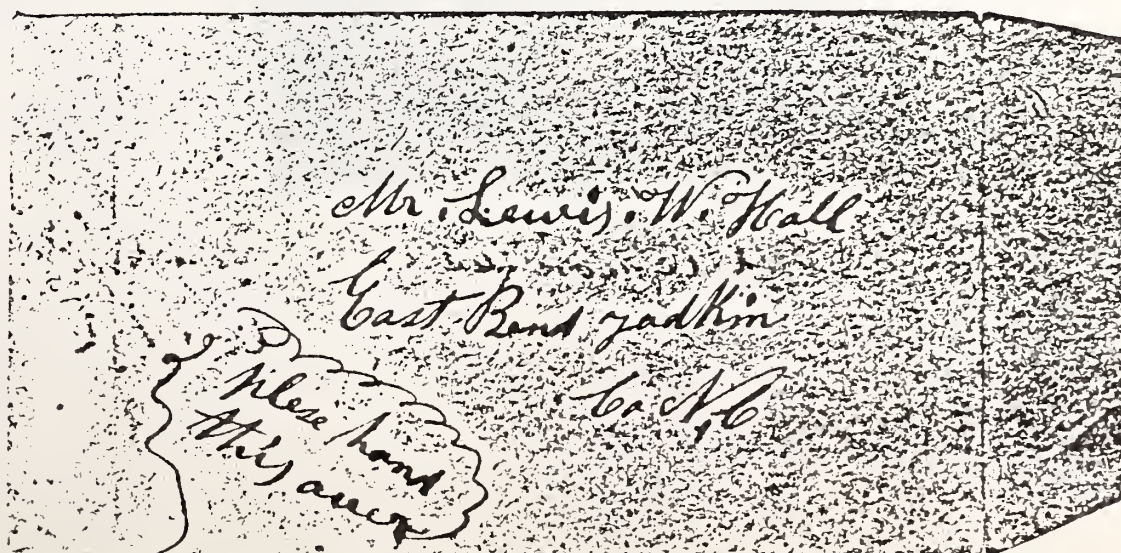 Mr. Lewis. W. Hall
East Bend yadkin
Co N,C
plese hand
this over